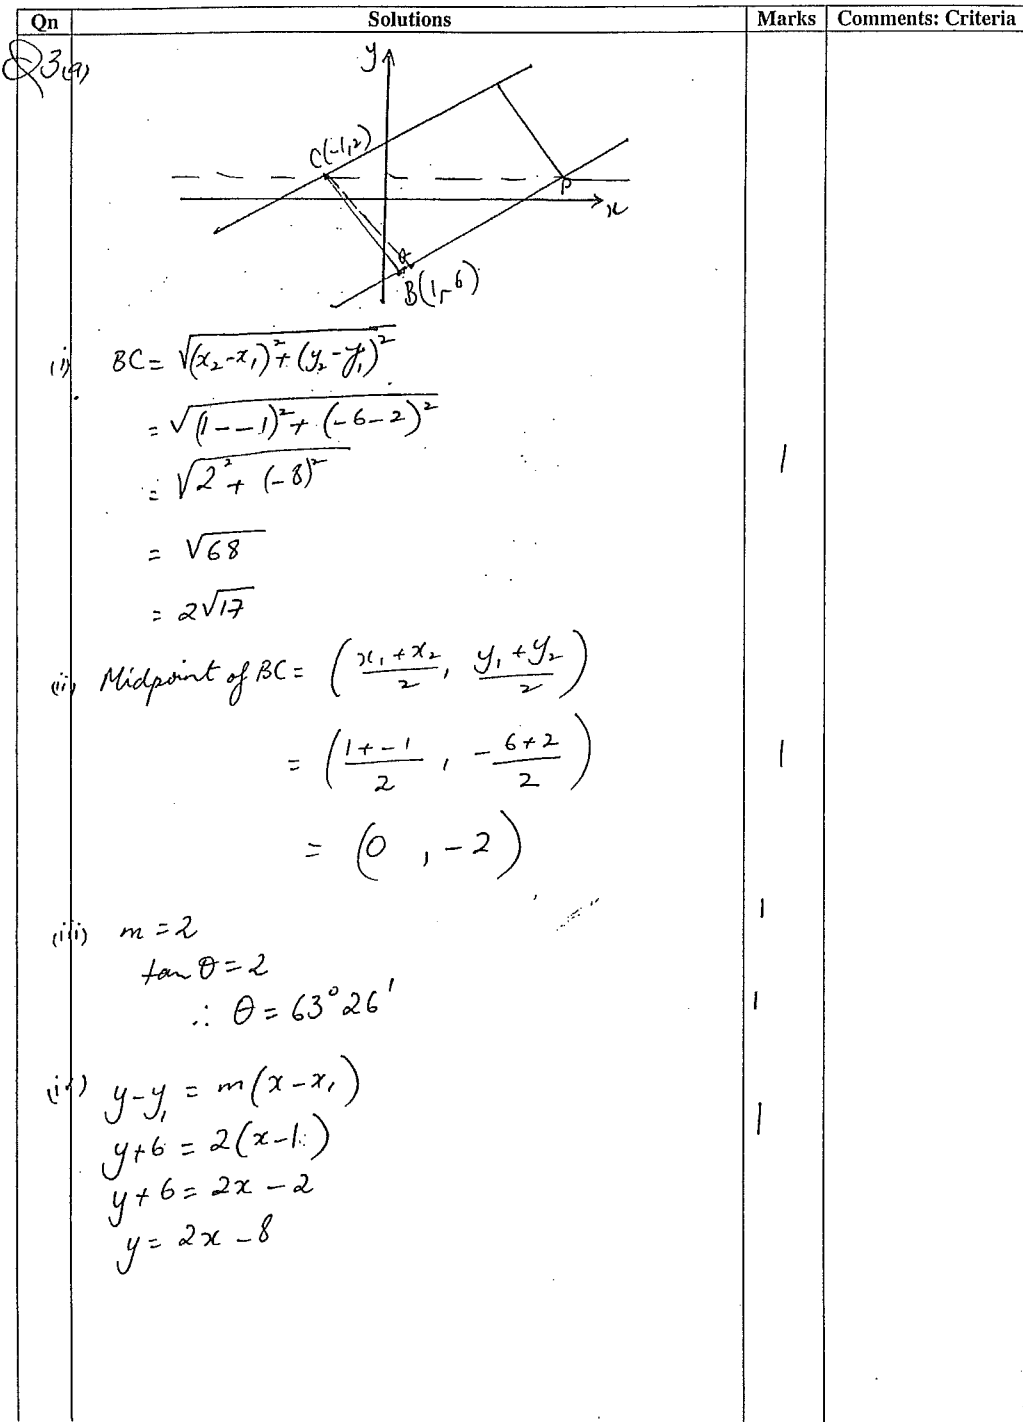 Qn Solutions Marks Comments: Criteria
Q3(a)
y
C(-1,2)
P
x
B(1,-6)
(i) BC = √((x₂-x₁)² + (y₂-y₁)²)
= √((1--1)² + (-6-2)²)
= √(2² + (-8)²) 1
= √68
= 2√17
(ii) Midpoint of BC = ((x₁+x₂)/2, (y₁+y₂)/2)
= ((1+-1)/2, (-6+2)/2) 1
= (0, -2)
(iii) m = 2 1
tan θ = 2
∴ θ = 63°26' 1
(iv) y-y₁ = m(x-x₁)
y+6 = 2(x-1) 1
y+6 = 2x-2
y = 2x-8